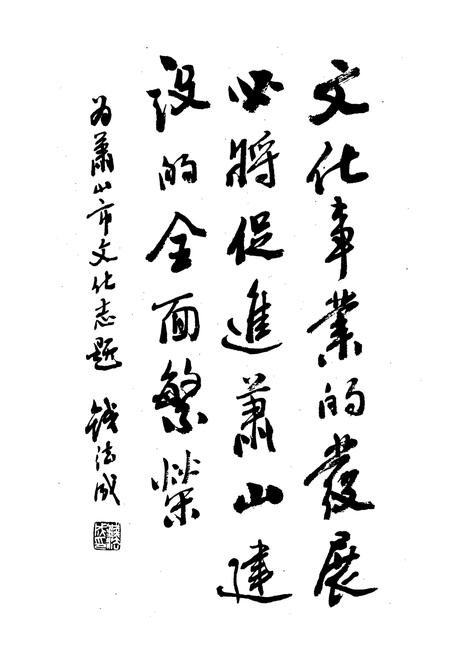 文化事业的發展
必將促進蕭山建
设的全面繁榮
为蕭山市文化志题
钱法成